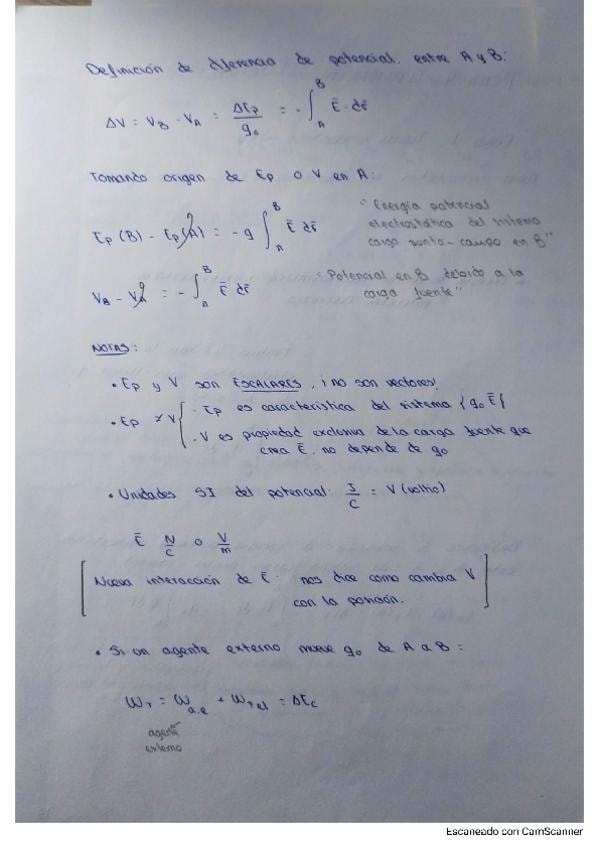 Definición de diferencia de potencial. entre A y B:
ΔV = V_B - V_A = ΔE_p / q_0 = - ∫_A^B Ē · dr̄
Tomando origen de E_p o V en A:
E_p (B) - E_p (A) = - q ∫_A^B Ē dr̄
"Energía potencial
electrostática del sistema
carga punto - campo en B"
V_B - V_A = - ∫_A^B Ē dr̄
"Potencial en B debido a la
carga fuente"
NOTAS:
• E_p y V son ESCALARES, ¡no son vectores!
• E_p ≠ V { · E_p es característica del sistema {q_0 Ē}
· V es propiedad exclusiva de la carga fuente que
crea Ē, no depende de q_0
• Unidades SI del potencial: J/C = V (voltio)
Ē N/C o V/m
[Nueva interacción de Ē: nos dice como cambia V
con la posición.]
• Si un agente externo mueve q_0 de A a B:
W_T = W_a.e + W_r el = ΔE_c
agente
externo
Escaneado con CamScanner